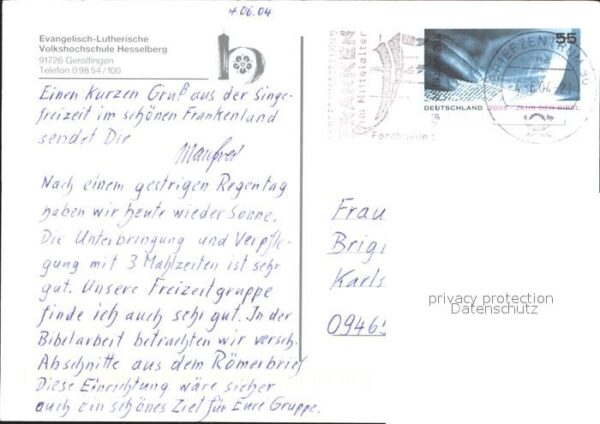 4.06.04
Evangelisch-Lutherische
Volkshochschule Hesselberg
91726 Gerolfingen
Telefon 0 98 54 / 100
Einen Kurzen Gruß aus der Singe-
freizeit im schönen Frankenland
sendet Die
Manfred
Nach einem gestrigen Regentag
haben wir heute wieder Sonne.
Die Unterbringung und Verpfle-
gung mit 3 Mahlzeiten ist sehr
gut. Unsere Freizeitgruppe
finde ich auch sehr gut. In der
Bibelarbeit betrachten wir versch.
Abschnitte aus dem Römerbrief
Diese Einrichtung wäre sicher
auch ein schönes Ziel für Eure Gruppe.
im Mittelalter
Forchheim
55
DEUTSCHLAND 2003 - JAHR DER BIBEL
BRIEFZENTRUM
Frau
Brigi
Karls
0946
privacy protection
Datenschutz